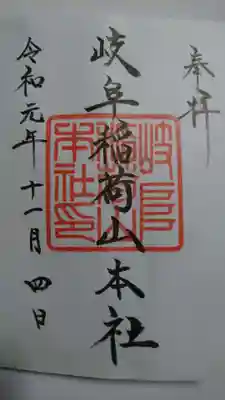 奉拝
岐阜稲荷山本社
岐阜
本社印
令和元年十一月四日